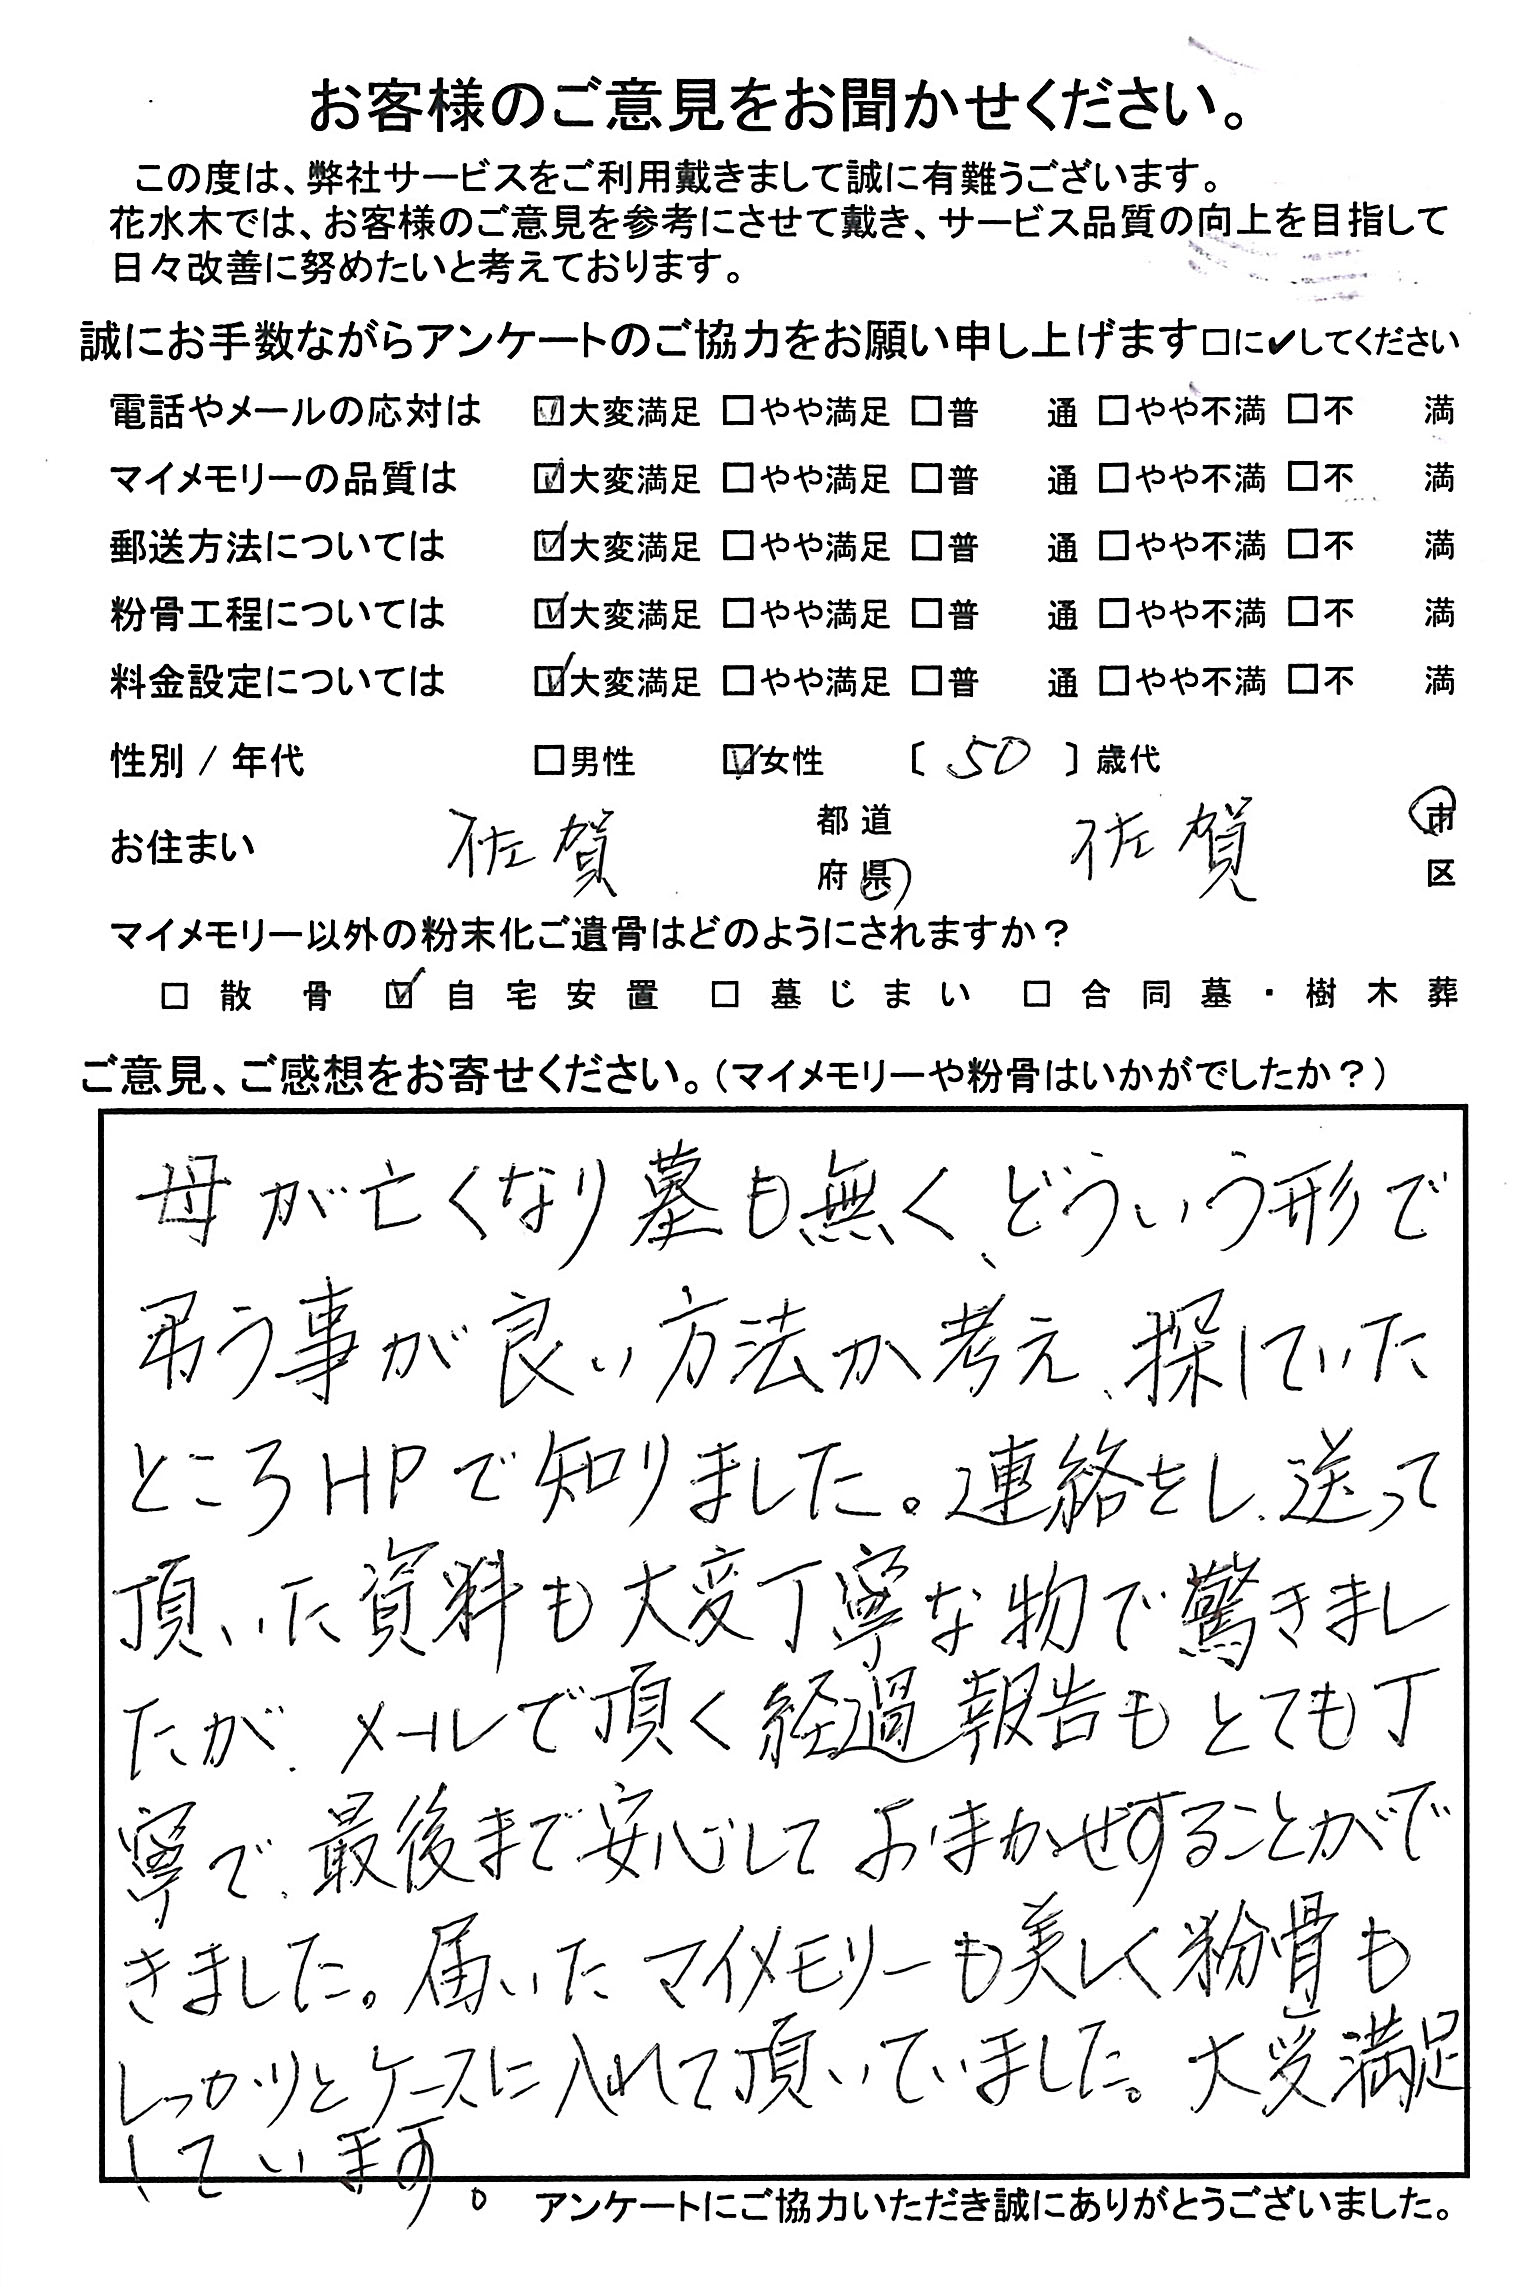 お客様のご意見をお聞かせください。
この度は、弊社サービスをご利用戴きまして誠に有難うございます。
花水木では、お客様のご意見を参考にさせて戴き、サービス品質の向上を目指して
日々改善に努めたいと考えております。
誠にお手数ながらアンケートのご協力をお願い申し上げます□に✔してください
電話やメールの応対は ☑大変満足 □やや満足 □普 通 □やや不満 □不 満
マイメモリーの品質は ☑大変満足 □やや満足 □普 通 □やや不満 □不 満
郵送方法については ☑大変満足 □やや満足 □普 通 □やや不満 □不 満
粉骨工程については ☑大変満足 □やや満足 □普 通 □やや不満 □不 満
料金設定については ☑大変満足 □やや満足 □普 通 □やや不満 □不 満
性別 / 年代 □男性 ☑女性 〔 50 〕歳代
お住まい 佐賀 都道府県 佐賀 市区
マイメモリー以外の粉末化ご遺骨はどのようにされますか？
□ 散骨 ☑ 自宅安置 □ 墓じまい □ 合同墓・樹木葬
ご意見、ご感想をお寄せください。（マイメモリーや粉骨はいかがでしたか？）
母が亡くなり墓も無く、どういう形で
弔う事が良い方法か考え、探していた
ところHPで知りました。連絡をし、送って
頂いた資料も大変丁寧な物で驚きまし
たが、メールで頂く経過報告もとても丁
寧で、最後まで安心しておまかせすることがで
きました。届いたマイメモリーも美しく粉骨も
しっかりとケースに入れて頂いていました。大変満足
しています。
アンケートにご協力いただき誠にありがとうございました。